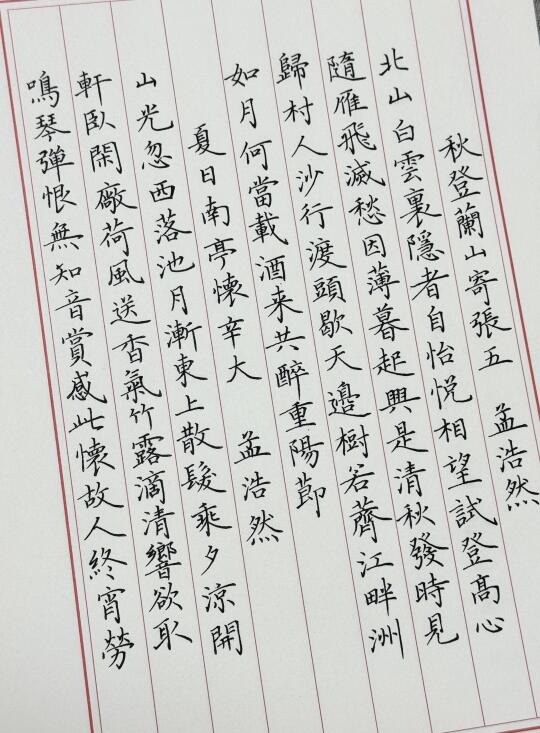 秋登蘭山寄張五 孟浩然
北山白雲裏隱者自怡悅相望試登高心
隨雁飛滅愁因薄暮起興是清秋發時見
歸村人沙行渡頭歇天邊樹若薺江畔洲
如月何當載酒来共醉重陽莭
夏日南亭懷辛大 孟浩然
山光忽西落池月漸東上散髮乘夕涼開
軒臥閑廠荷風送香氣竹露滴清響欲取
鳴琴彈恨無知音賞感此懷故人終宵勞